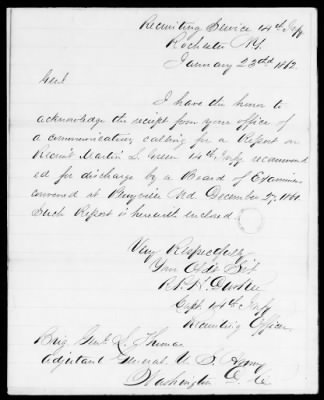 Recruiting Service 14th Infy
Rochester N.Y.
January 23rd 1862.
Genl
I have the honor to
acknowledge the receipt from your office of
a communication calling for a Report on
Recruit Martin L. Green 14th Infy, recommend
ed for discharge by a Board of Examiners
convened at Perryville Md. December 27, 1861.
Such Report is herewith enclosed.
Very Respectfully
Your Obdt Svt
Capt. 14th Infy
Recruiting Officer
Brig. Genl L. Thomas
Adjutant General U. S. Army
Washington D. C.